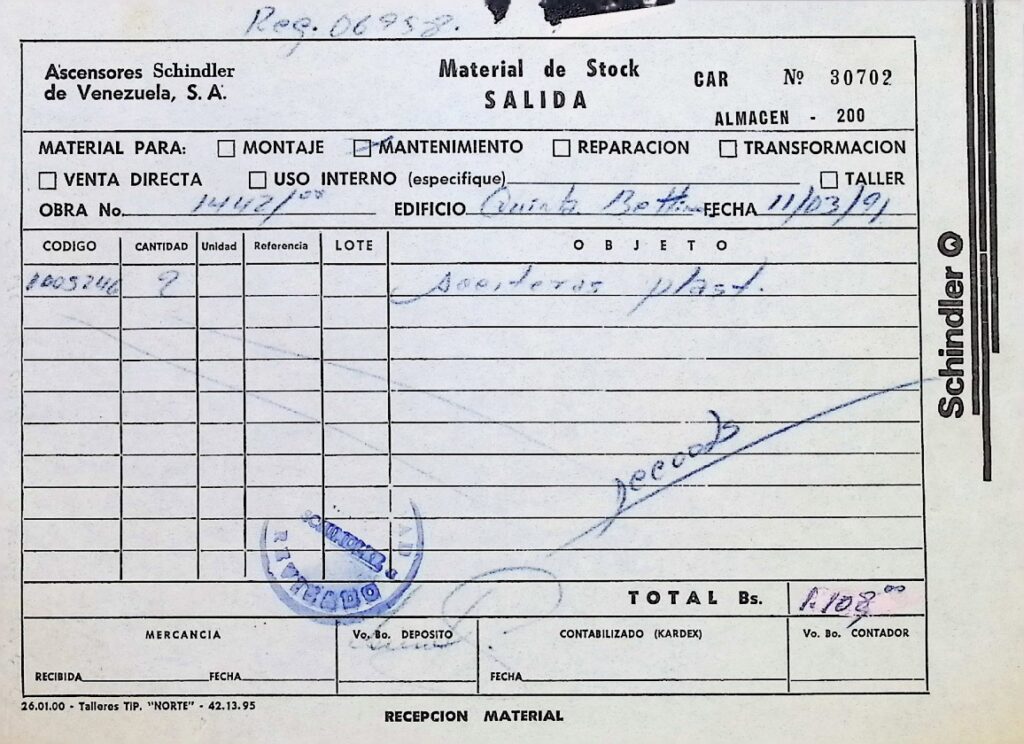 Reg. 06958.
Ascensores Schindler
de Venezuela, S. A.
Material de Stock
SALIDA
CAR Nº 30702
ALMACEN - 200
MATERIAL PARA: MONTAJE MANTENIMIENTO REPARACION TRANSFORMACION
VENTA DIRECTA USO INTERNO (especifique) TALLER
OBRA No. 1442/00 EDIFICIO Quinta FECHA 11/03/91
CODIGO CANTIDAD Unidad Referencia LOTE OBJETO
2 Aceiteras plast.
Schindler
TOTAL Bs. 1.108,00
MERCANCIA Vo. Bo. DEPOSITO CONTABILIZADO (KARDEX) Vo. Bo. CONTADOR
RECIBIDA FECHA FECHA
26.01.00 - Talleres TIP. "NORTE" - 42.13.95
RECEPCION MATERIAL